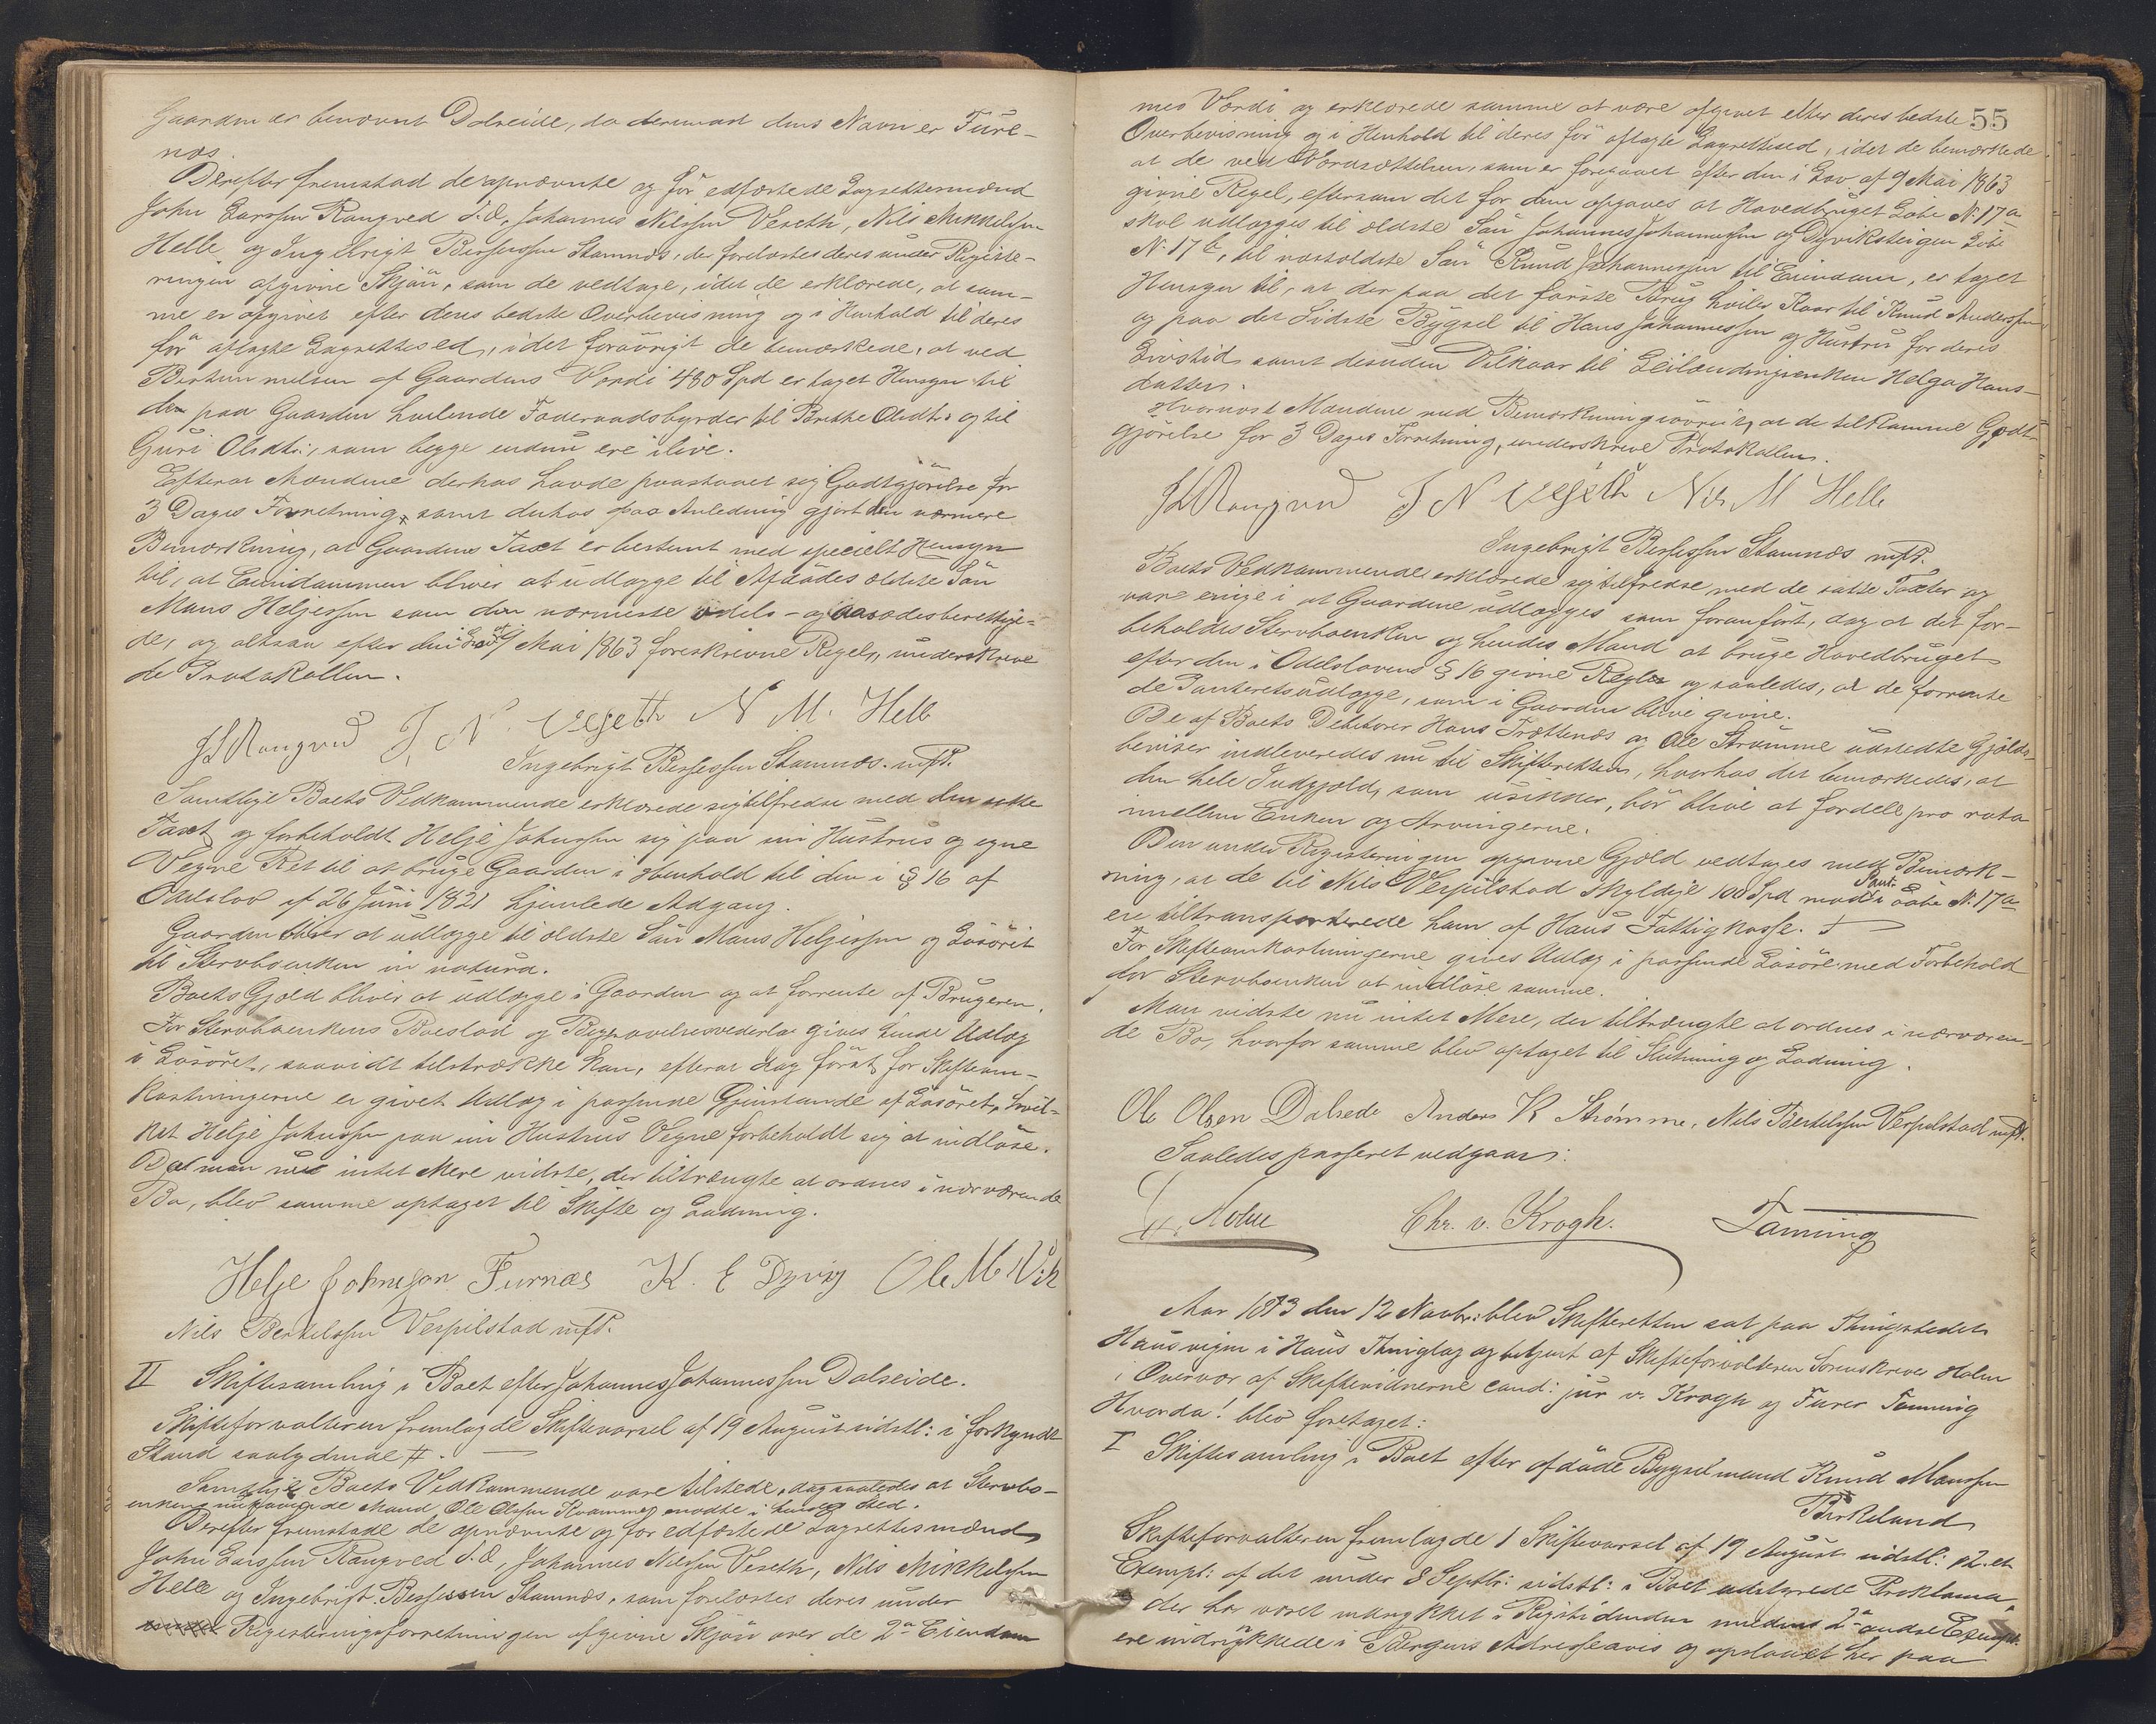 Gaarden er benævnt Dalseide, da derimod dens Navn er Fure-
næs.
Derefter fremstod de opnævnte og før edfæstede Lagrettesmænd
John Larssen Rangved d. æ, Johannes Nilssen Veseth, Nils Mikkelsen
Helle og Ingebrigt Bersessen Stamnæs, der forelæstes deres under Registe-
ringen afgivne Skjøn, som de vedtoge, idet de erklærede, at sam-
me er afgivet efter deres bedste Overbevisning og i Henhold til deres
før aflagte Lagrettesed, idet forøvrigt de bemærkede, at ved
Bestemmelsen af Gaardens Værdi 480 Spd er taget Hensyn til
den paa Gaarden hvilende Føderaadsbyrder til Brithe Olsdtr. og til
Guri Olsdtr:, som begge endnu ere ilive.
Efterat Mændene derhos havde paastaaet sig Godtgjørelse for
3 Dages Forretning, samt derhos paa Anledning gjort den nærmere
Bemærkning, at Gaardens Taxt er bestemt med specielt Hensyn
til, at Eiendommen bliver at udlægge til Afdødes ældste Søn
Mons Heljessen som den nærmeste odels- og aasædesberettige-
de, og altsaa efter den i Lov af 9 Mai 1863 foreskrevne Regel, underskreve
de Protokollen.
J L Rangved J. N. Veseth N M. Helle
Ingebrigt Bersessen Stamnæs. mfP.
Samtlige Boets Vedkommende erklærede sig tilfredse med den satte
Taxt og forbeholdt Helje Johnssen sig paa sin Hustrus og egne
Vegne Ret til at bruge Gaarden i Henhold til den i § 16 af
Odelslov af 26 Juni 1821 hjemlede Adgang.
Gaarden bliver at udlægge til ældste Søn Mons Heljessen og Løsøret
til Stervboenken in natura.
Boets Gjæld bliver at udlægge i Gaarden og at forrente af Brugeren.
For Stervboenkens Boeslod og Begravelsesvederlag gives hende Udlæg
i Løsøret, saavidt tilstrække kan, efterat dog først for Skifteom-
kostningerne er givet Udlæg i passende Gjenstande af Løsøret, hvil-
ket Helje Johnssen paa sin Hustrus Vegne forbeholdt sig at indløse.
Da man nu intet Mere vidste, der tiltrængte at ordnes i nærværende
Bo, blev samme optaget til Skifte og Lodning.
Helje Johnesson Furnæs K. E Dyvig Ole M Vik
Nils Berthelssen Verpilstad mfP.
II Skiftesamling i Boet efter Johannes Johannessen Dalseide.
Skifteforvalteren fremlagde Skiftevarsel af 19 August sidstl: i forkyndt
Stand saalydende #.
Samtlige Boets Vedkommende vare tilstede, dog saaledes at Stervbo-
enkens nuværende Mand Ole Olssen Kvamme mødte i hendes Sted.
Derefter fremstode de opnævnte og før edfæstede Lagrettesmænd
John Larssen Rangved d. æ, Johannes Nilssen Veseth, Nils Mikkelsen
Helle og Ingebrigt Bersessen Stamnæs, som forelæstes deres under
Registeringsforretningen afgivne Skjøn over de 2de Eiendom-
55
mes Værdi og erklærede samme at være afgivet efter deres bedste
Overbevisning og i Henhold til deres før aflagte Lagrettesed, idet de bemærkede
at de ved Værdsættelsen, som er foregaaet efter den i Lov af 9 Mai 1863
givne Regel, eftersom det for dem opgaves at Hovedbruget Løbe No 17a
skal udlægges til ældste Søn Johannes Johannessen og Dyviksteigen Løbe
No 17b, til næstældste Søn Knud Johannessen til Eiendom, er taget
Hensyn til, at der paa det første Brug hviler Kaar til Knud Anderssen
og paa det Sidste Bygsel til Hans Johannessen og Hustru for deres
Livstid samt desuden Vilkaar til Leilændingsenken Helga Hans-
datter.
Hvornæst Mændene med Bemærkning iøvrigt, at de tilkomme Godt-
gjørelse for 3 Dages Forretning, underskreve Protokollen.
J L Rangved J N Veseth Nils M Helle
Ingebrigt Bersessen Stamnæs mfP.
Boets Vedkommende erklærede sig tilfredse med de satte Taxter og
vare enige i at Gaardene udlægges som foranført, dog at det for-
beholdes Stervboenken og hendes Mand at bruge Hovedbruget
efter den i Odelslovens § 16 givne Regler og saaledes, at de forrente
de Panteretsudlægge, som i Gaarden blive givne.
De af Boets Debitorer Hans Trættenæs og Ole Strømme udstedte Gjælds-
beviser indleveredes nu til Skifteretten, hvorhos det bemærkedes, at
den hele Indgjæld, som usikker, bør blive at fordele pro rata
mellem Enken og Arvingerne.
Den under Registeringen opgivne Gjæld vedtages med Bemærk-
ning, at de til Nils Verpilstad skyldige 100 Spd mod Pant i Løbe No 17a
ere tiltransporterede ham af Haus Fattigkasse.
For Skifteomkostningerne gives Udlæg i passende Løsøre med Forbehold
for Stervboenken at indløse samme.
Man vidste nu intet Mere, der tiltrængte at ordnes i nærværen-
de Bo, hvorfor samme blev optaget til Slutning og Lodning.
Ole Olsen Dalsede Anders K Strømme, Nils Berthelssen Verpilstad mfP.
Saaledes passeret vedgaaes:
Holm Chr. v. Krogh. Tanning
Aar 1873 den 12 Novbr: blev Skifteretten sat paa Thingstedet
Hausvigen i Haus Thinglag og betjent af Skifteforvalteren Sorenskriver Holm
i Overvær af Skiftevidnerne cand: jur v. Krogh og Furer Tanning
Hvorda! blev foretaget:
I Skiftesamling i Boet efter afdøde Bygselmand Knud Monssen
Birkeland
Skifteforvalteren fremlagde 1 Skiftevarsel af 19 August sidstl: 2. et
Exempl: af det under 8 Septbr: sidstl: i Boet udstyrede Proklama,
der har været indrykket i Rigstidenden medens 2de andre Exempl.
ere indrykkede i Bergens Adresseavis og opslaaet her paa